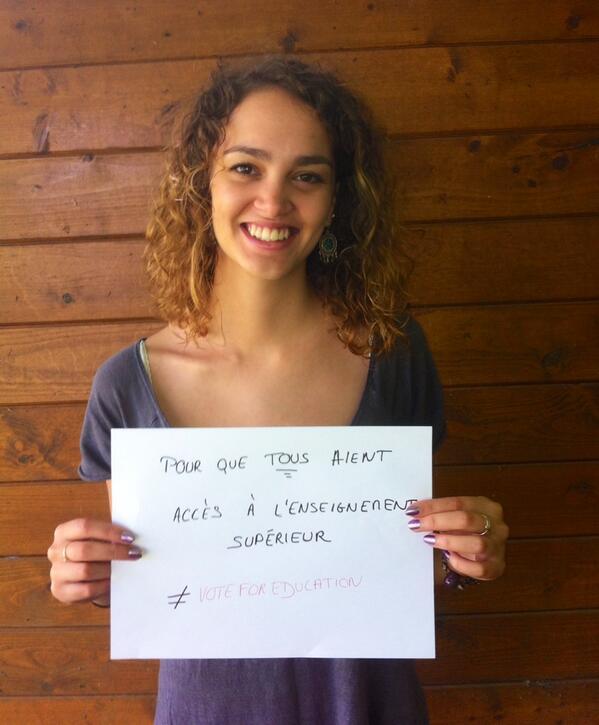 POUR QUE TOUS AIENT
ACCÈS À L'ENSEIGNEMENT
SUPÉRIEUR
≠ VOTE FOR EDUCATION